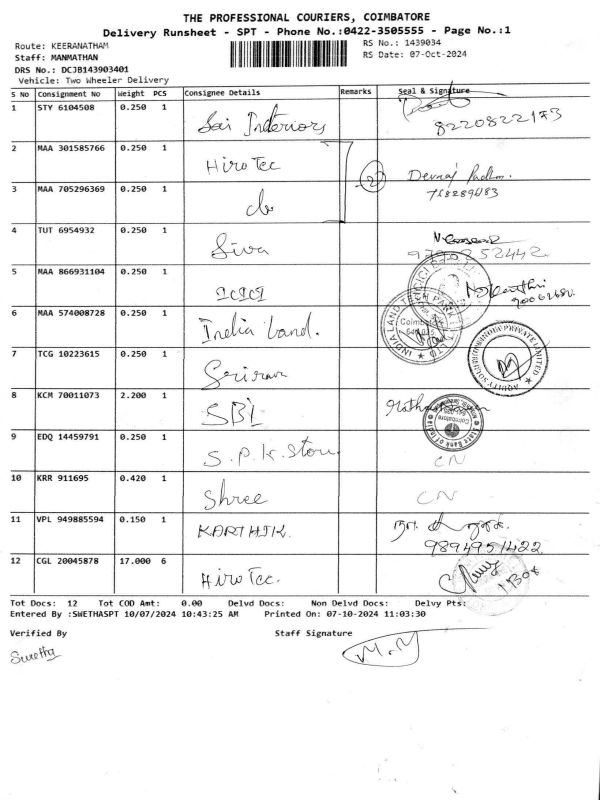 THE PROFESSIONAL COURIERS, COIMBATORE
Delivery Runsheet - SPT - Phone No.:0422-3505555 - Page No.:1
Route: KEERANATHAM
RS No.: 1439034
Staff: MANMATHAN
RS Date: 07-Oct-2024
DRS No.: DCJB143903401
Vehicle: Two Wheeler Delivery
S No Consignment No Weight PCS Consignee Details Remarks Seal & Signature
1 STY 6104508 0.250 1 Sai Interiors 8220822173
2 MAA 301585766 0.250 1 Hiro Tec 2 Devraj
3 MAA 705296369 0.250 1 do
4 TUT 6954932 0.250 1 Siva
5 MAA 866931104 0.250 1 ICICI
6 MAA 574008728 0.250 1 India Land.
7 TCG 10223615 0.250 1 Sriram
8 KCM 70011073 2.200 1 SBI
9 EDQ 14459791 0.250 1 S.P.K. Store CN
10 KRR 911695 0.420 1 Shree CN
11 VPL 949885594 0.150 1 KARTHIK. 9894951422
12 CGL 20045878 17.000 6 Hiro Tec.
Tot Docs: 12 Tot COD Amt: 0.00 Delvd Docs: Non Delvd Docs: Delvy Pts:
Entered By :SWETHASPT 10/07/2024 10:43:25 AM Printed On: 07-10-2024 11:03:30
Verified By Staff Signature
Swetha M.M